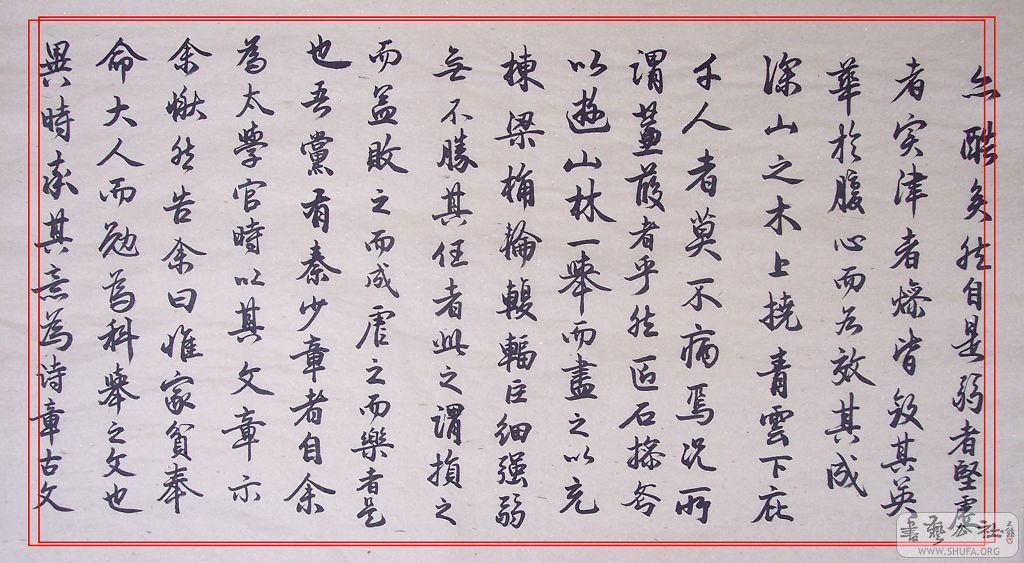 亦酷矣然自是弱者堅虛
者实津者燥皆斂其英
華於腹心而各效其成
深山之木上撓青雲下庇
千人者莫不病焉况所
謂蒹葭者乎然匠石操斧
以遊山林一舉而盡之以充
棟梁桷輪輹輻巨細强弱
无不勝其任者此之謂損之
而益敗之而成虐之而樂者是
也吾黨有秦少章者自余
為太學官時以其文章示
余愀然告余曰惟家貧奉
命大人而勉為科舉之文也
異時率其意為詩章古文
書藝公社
WWW.SHUFA.ORG